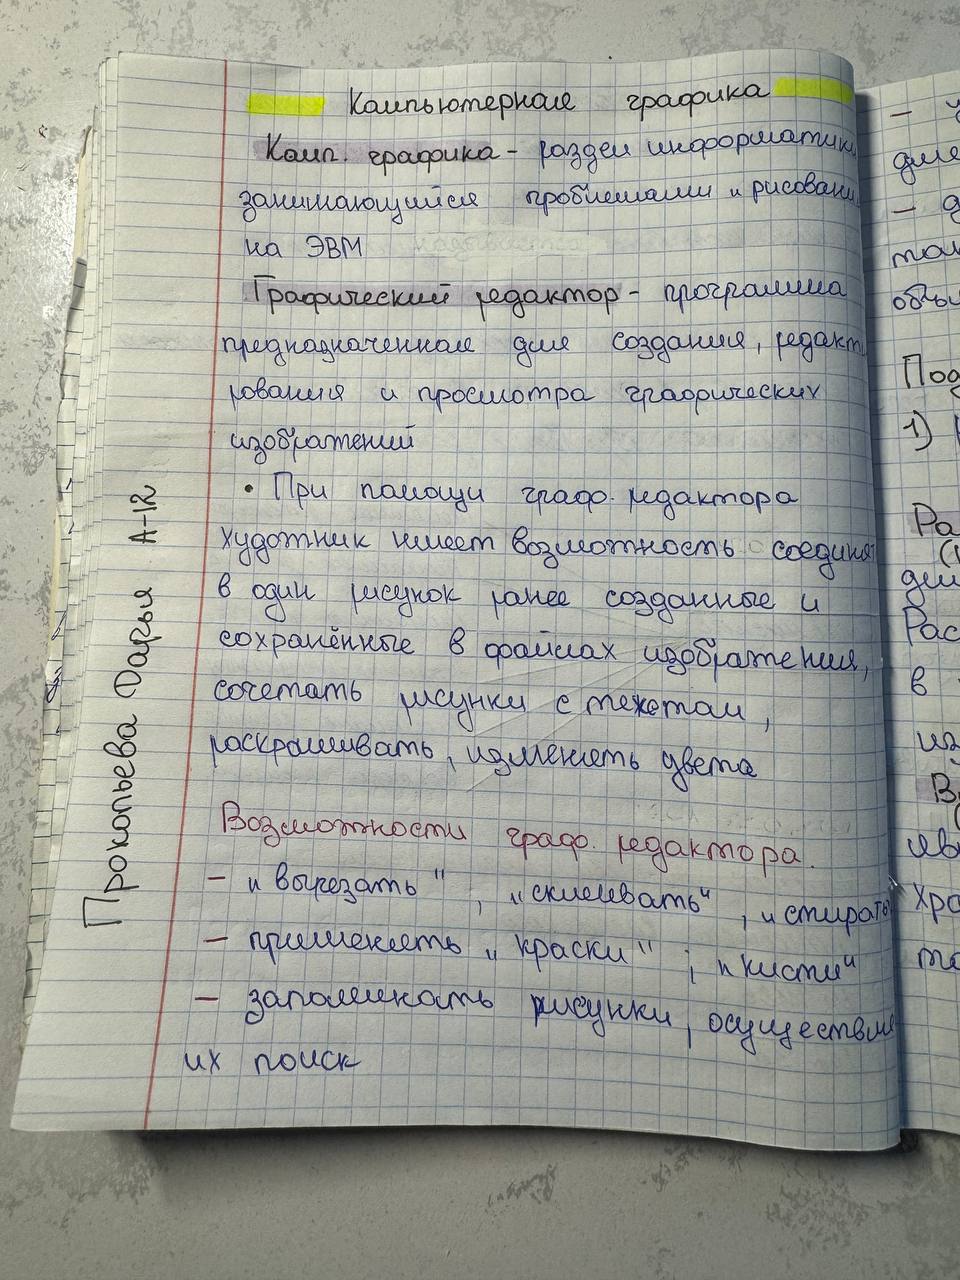 Компьютерная графика
Комп. графика - раздел информатики
занимающийся проблемами и рисовани
на ЭВМ
Графический редактор - программа
предназначенная для создания, редакти
рования и просмотра графических
изображений
• При помощи граф. редактора
художник имеет возможность соединя
в один рисунок ранее созданные и
сохранённые в файлах изображения,
сочетать рисунки с текстом,
раскрашивать, изменять цвета
Возможности граф. редактора.
- „вырезать", „склеивать", „стирать
- применять „краски", „кисти"
- запоминать рисунки, осуществля
их поиск
Прокопьева Дарья А-12
-
для
-
объ
Под
1)
Ра
дл
Рас
в
из
В
яв
хра